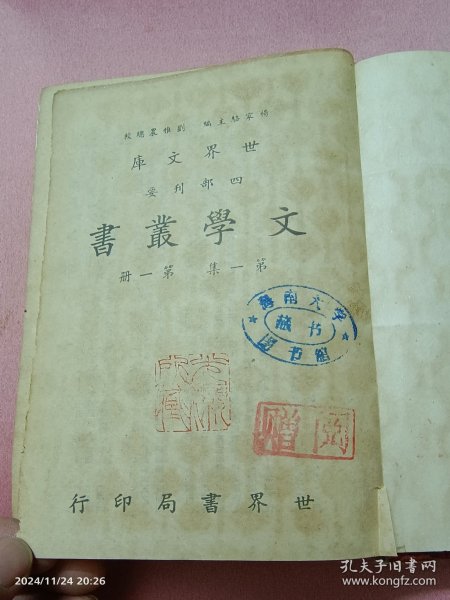 楊家駱主編 劉雅農總校
世界文庫
四部刊要
文學叢書
第一集 第一册
南大
藏书
图书館
贈
世界書局印行
2024/11/24 20:26
孔夫子旧书网
www.kongfz.com